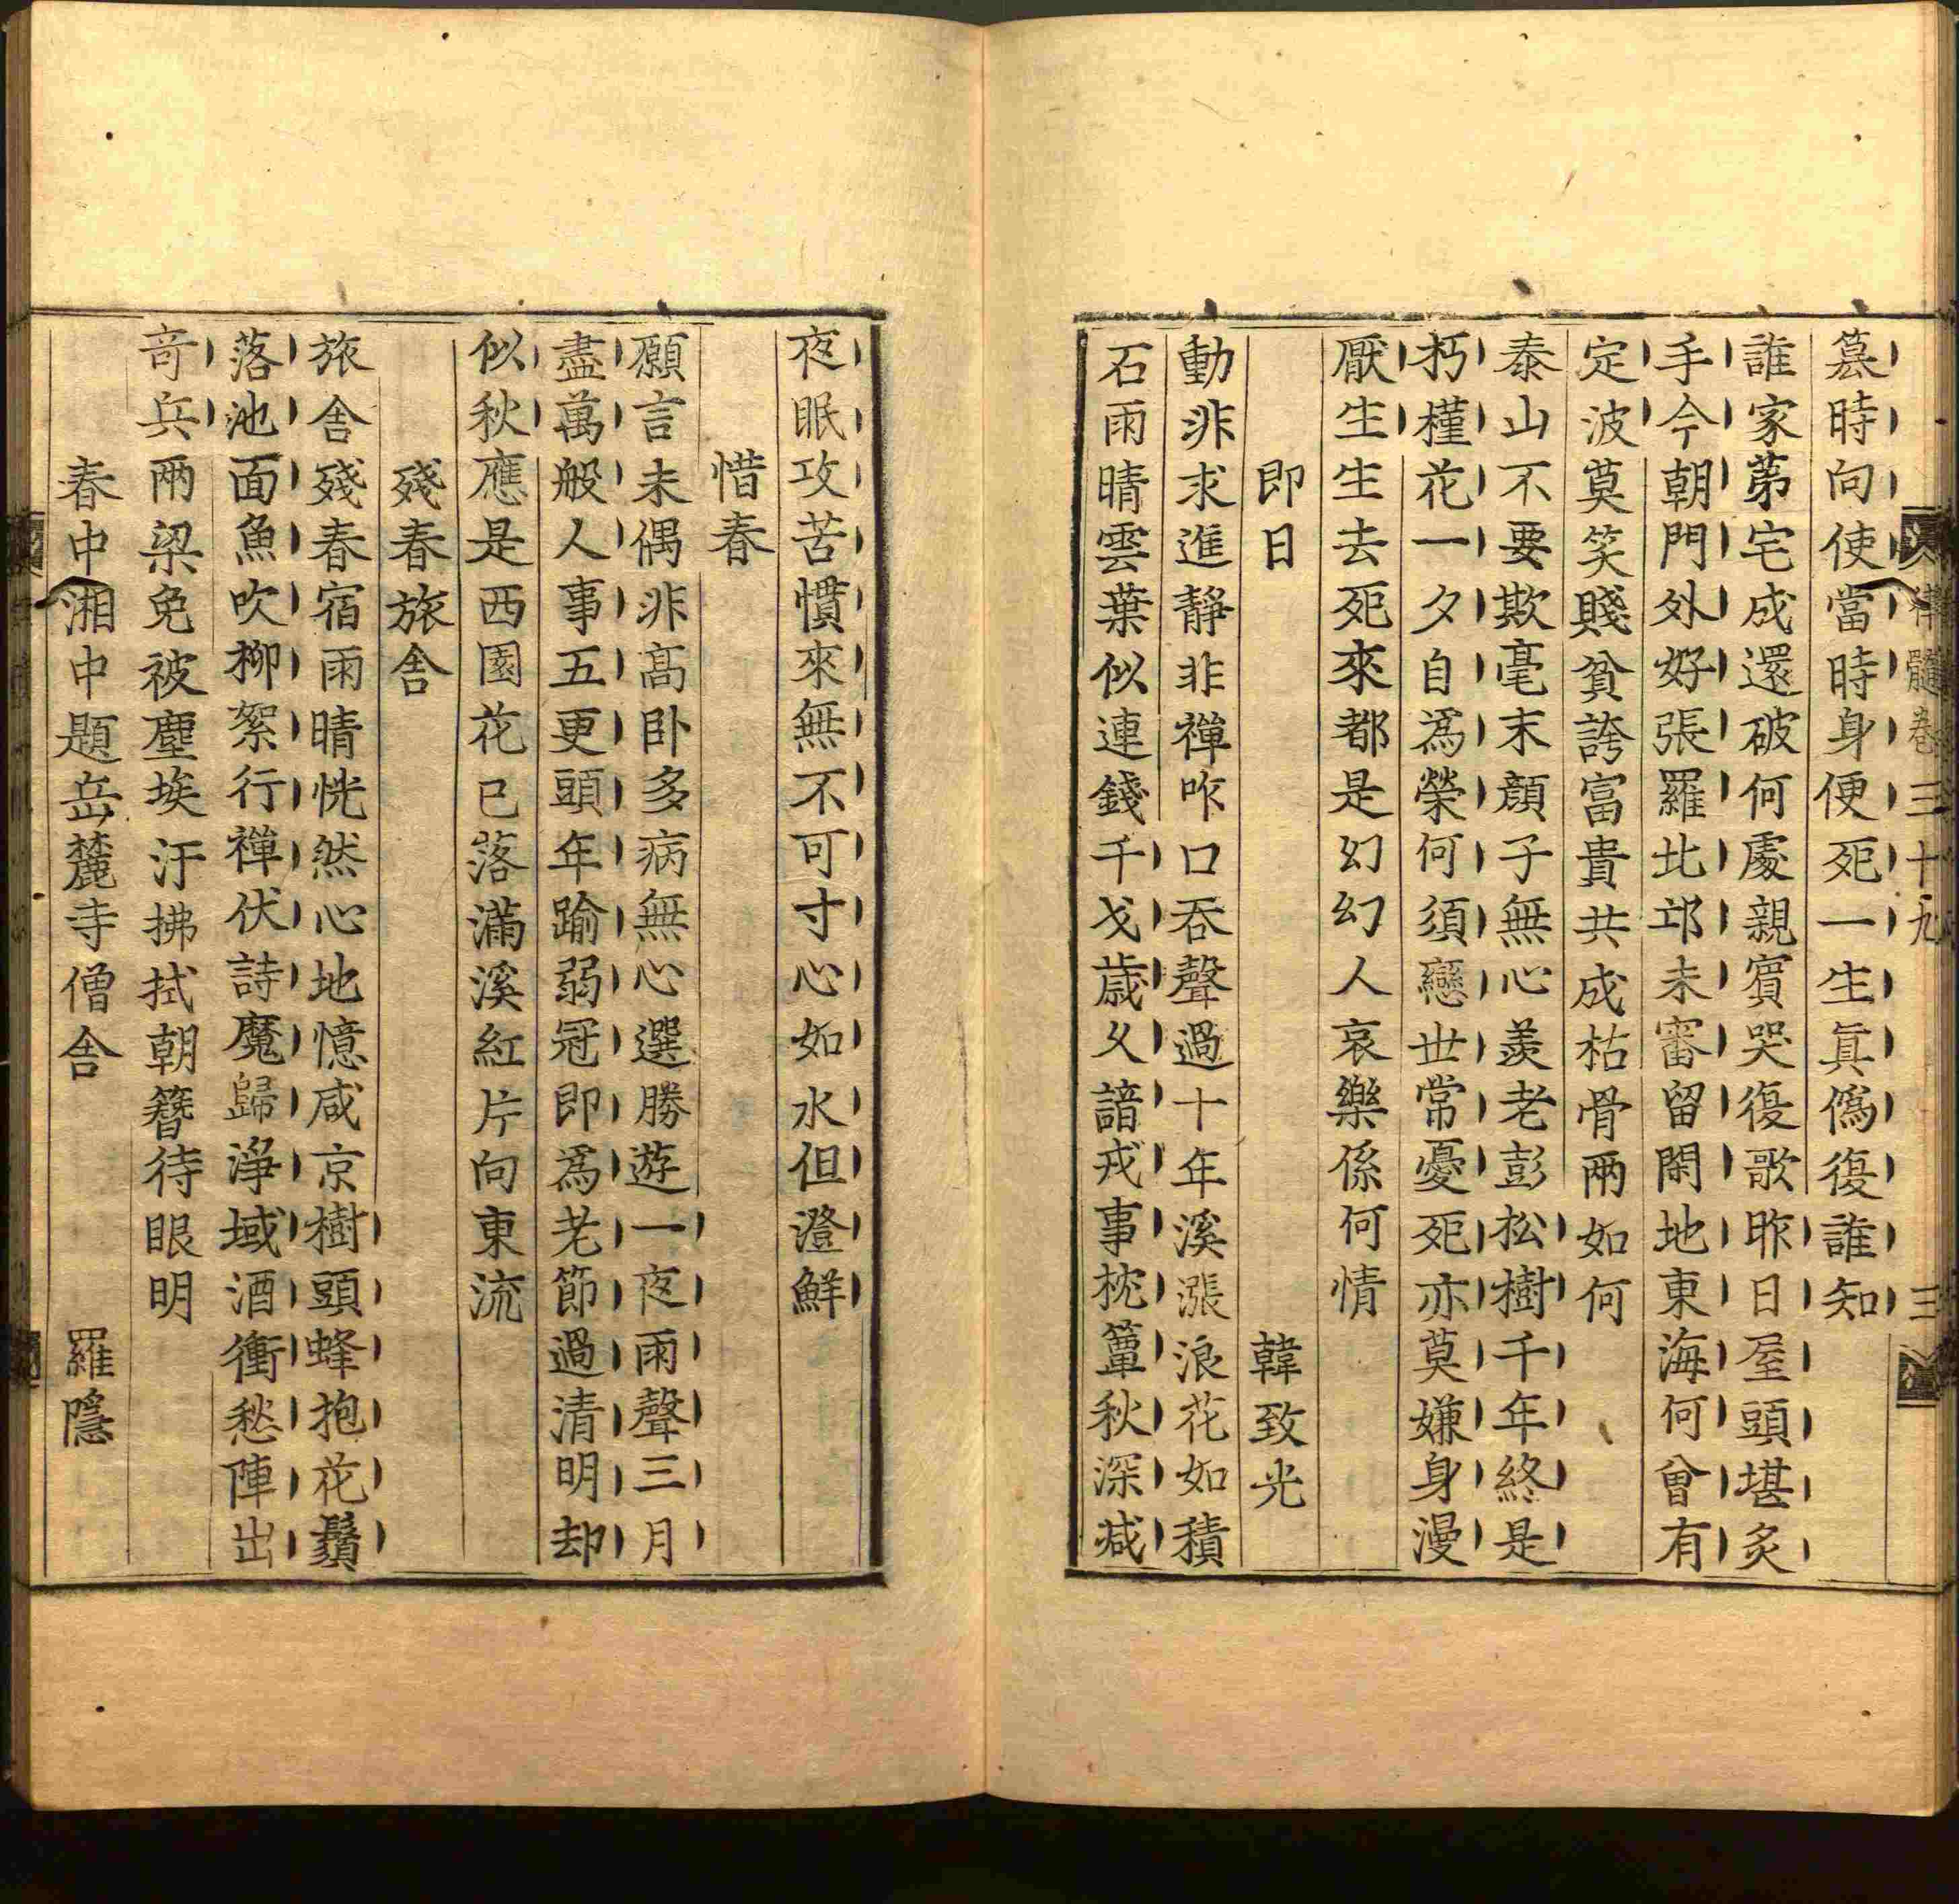 律髓卷三十九 三
篡時向使當時身便死一生真僞復誰知
誰家苐宅成還破何處親賓哭復歌昨日屋頭堪炙
手今朝門外好張羅北邙未審留閑地東海何曾有
定波莫笑賤貧誇富貴共成枯骨兩如何
泰山不要欺毫末顔子無心羨老彭松樹千年終是
朽槿花一夕自爲榮何須戀世常憂死亦莫嫌身漫
厭生生去死來都是幻幻人哀樂係何情
即日 韓致光
動非求進靜非禪咋口吞聲過十年溪漲浪花如積
石雨晴雲葉似連錢千戈歲久諳戎事枕簟秋深減
夜眠攻苦慣來無不可寸心如水但澄鮮
惜春
願言未偶非高卧多病無心選勝遊一夜雨聲三月
盡萬般人事五更頭年踰弱冠即爲老節過清明却
似秋應是西園花已落滿溪紅片向東流
殘春旅舍
旅舍殘春宿雨晴恍然心地憶咸京樹頭蜂抱花鬚
落池面魚吹柳絮行禪伏詩魔歸淨域酒衝愁陣出
竒兵兩梁免被塵埃汙拂拭朝簪待眼明
春中湘中題岳麓寺僧舍 羅隱